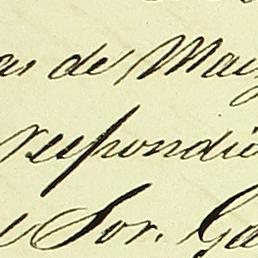 as de May
respondio
Sor. Ga